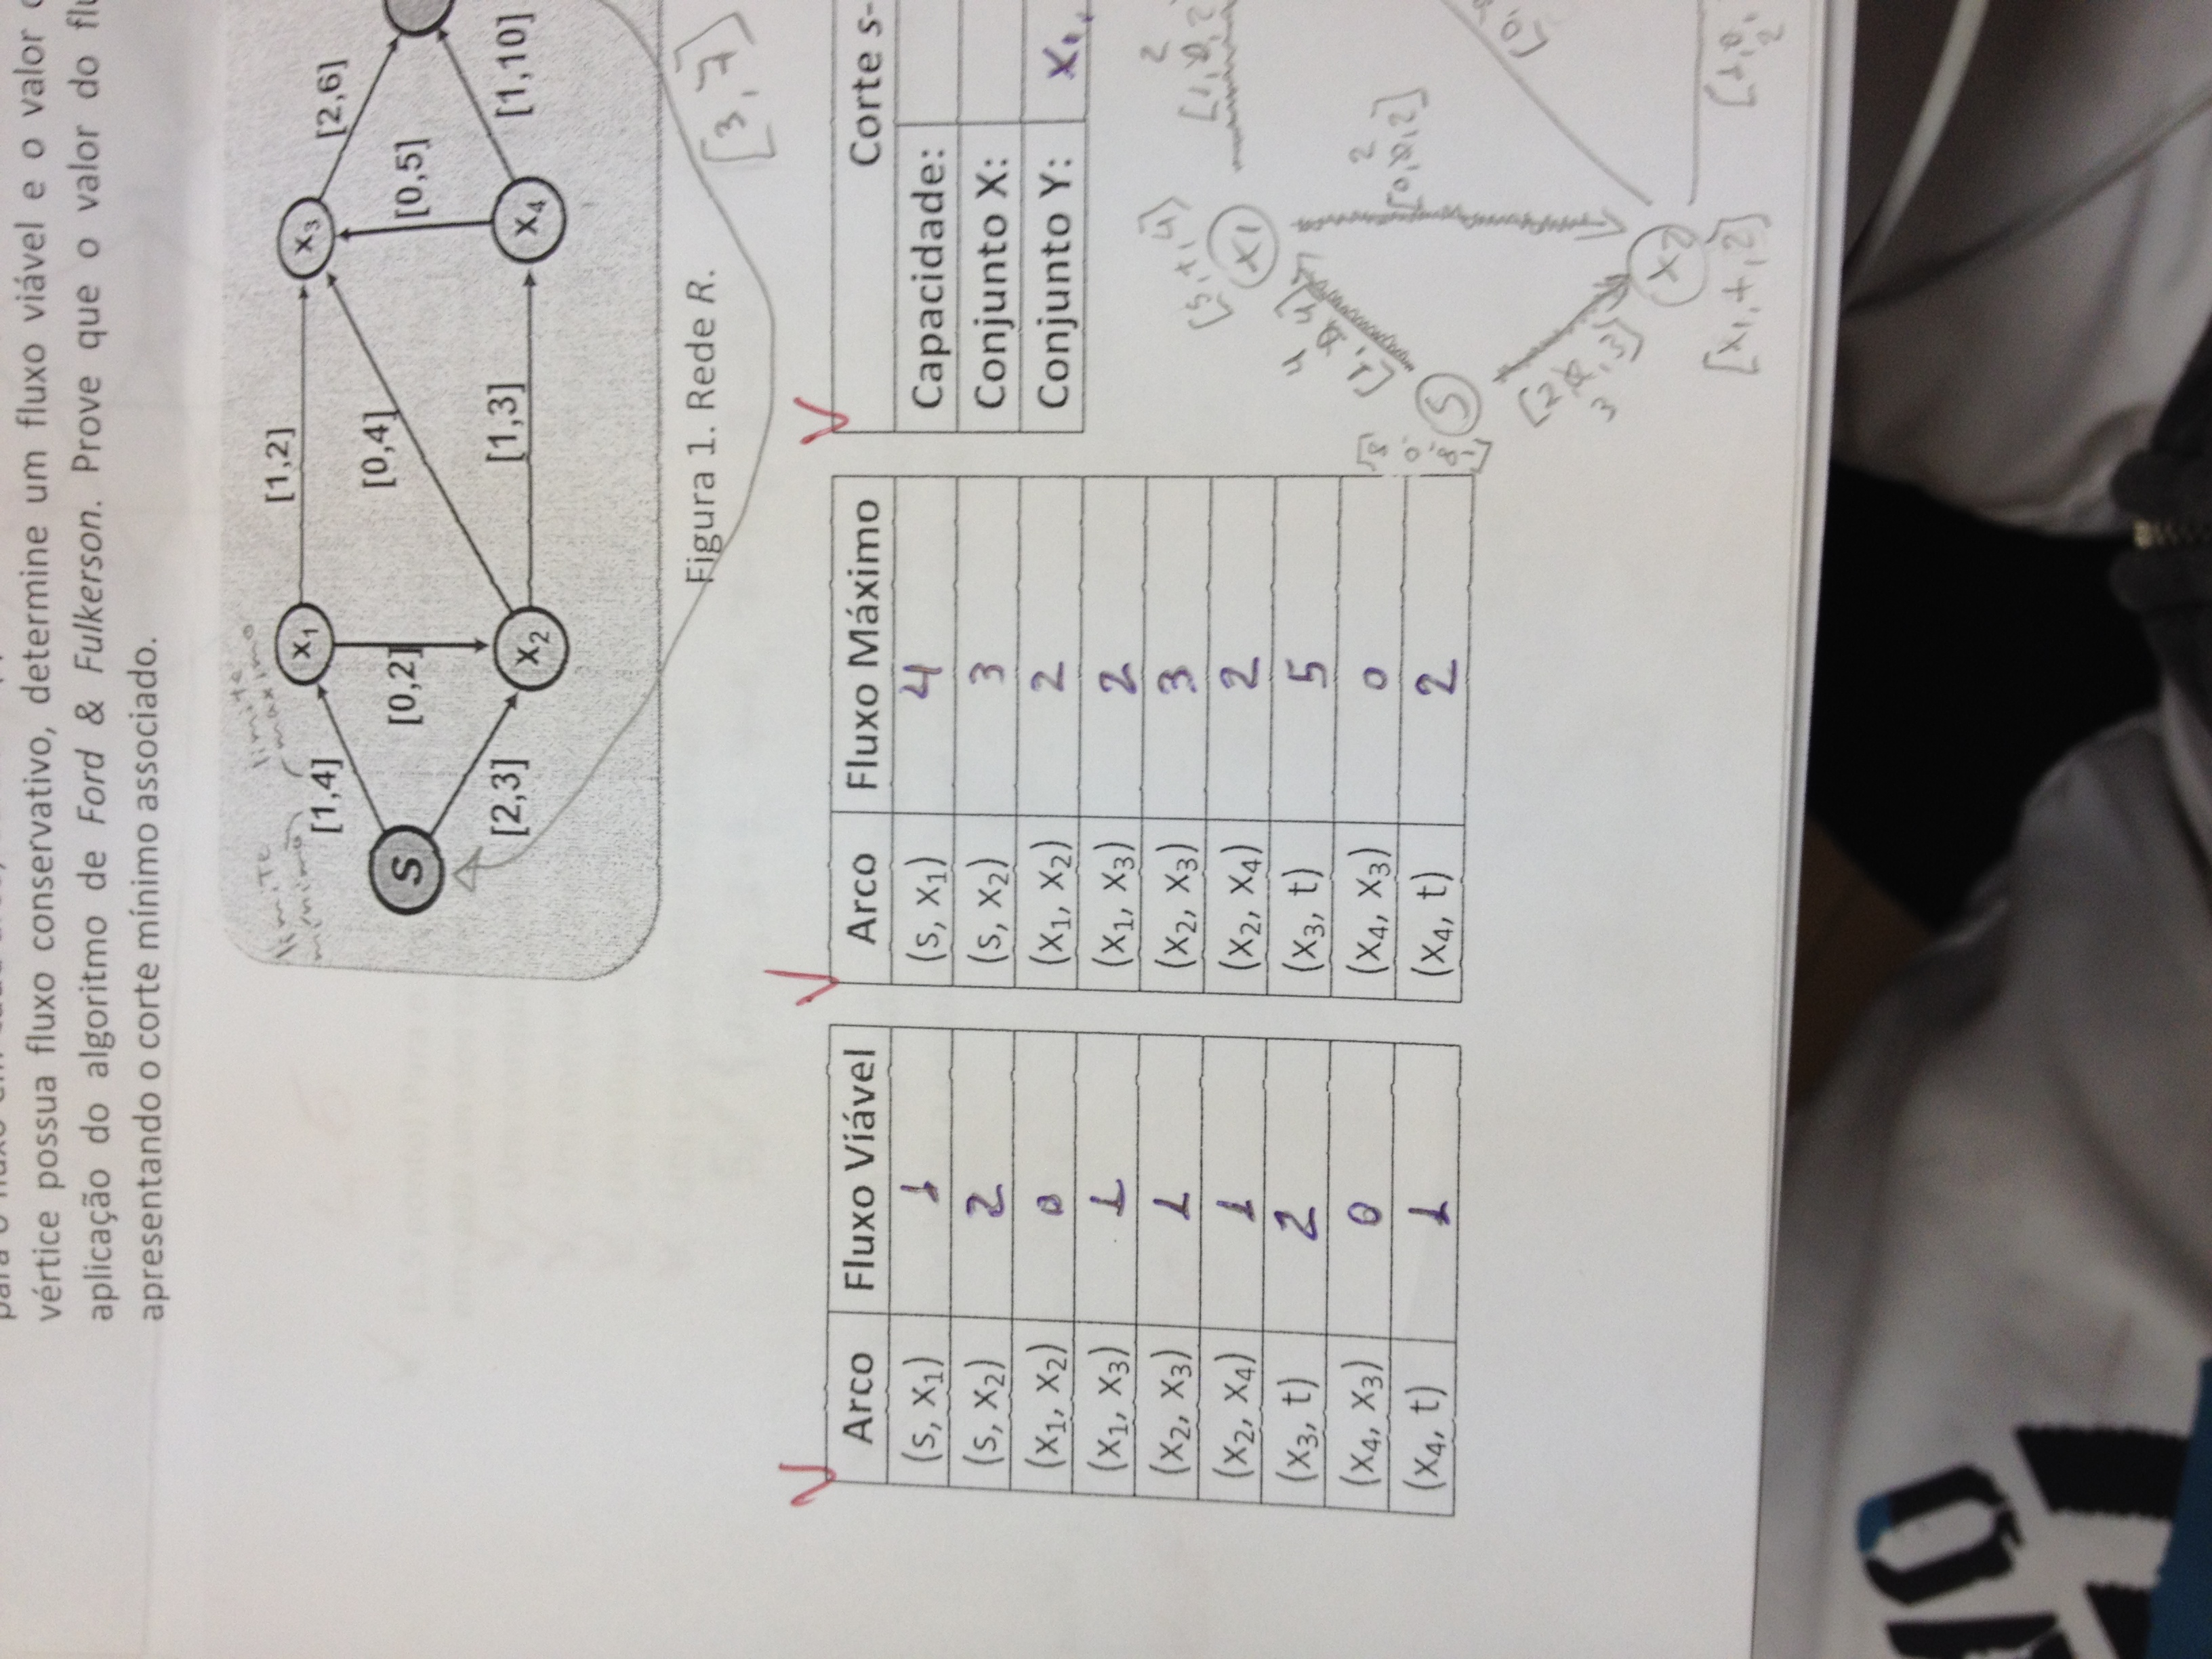 vértice possua fluxo conservativo, determine um fluxo viável e o valor
aplicação do algoritmo de Ford & Fulkerson. Prove que o valor do
apresentando o corte mínimo associado.
limite mínimo
limite máximo
[1,4]
[1,2]
[2,6]
[0,2]
[0,4]
[0,5]
[2,3]
[1,3]
[1,10]
S
x1
x3
x2
x4
Figura 1. Rede R.
[3,7]
Arco Fluxo Viável
(s, x1) 1
(s, x2) 2
(x1, x2) 0
(x1, x3) 1
(x2, x3) 1
(x2, x4) 1
(x3, t) 2
(x4, x3) 0
(x4, t) 1
Arco Fluxo Máximo
(s, x1) 4
(s, x2) 3
(x1, x2) 2
(x1, x3) 2
(x2, x3) 3
(x2, x4) 2
(x3, t) 5
(x4, x3) 0
(x4, t) 2
Corte s-
Capacidade:
Conjunto X:
Conjunto Y: x1,
[s,+,4]
x1
2
4
2
S
3
x2
[x1,+,2]
2